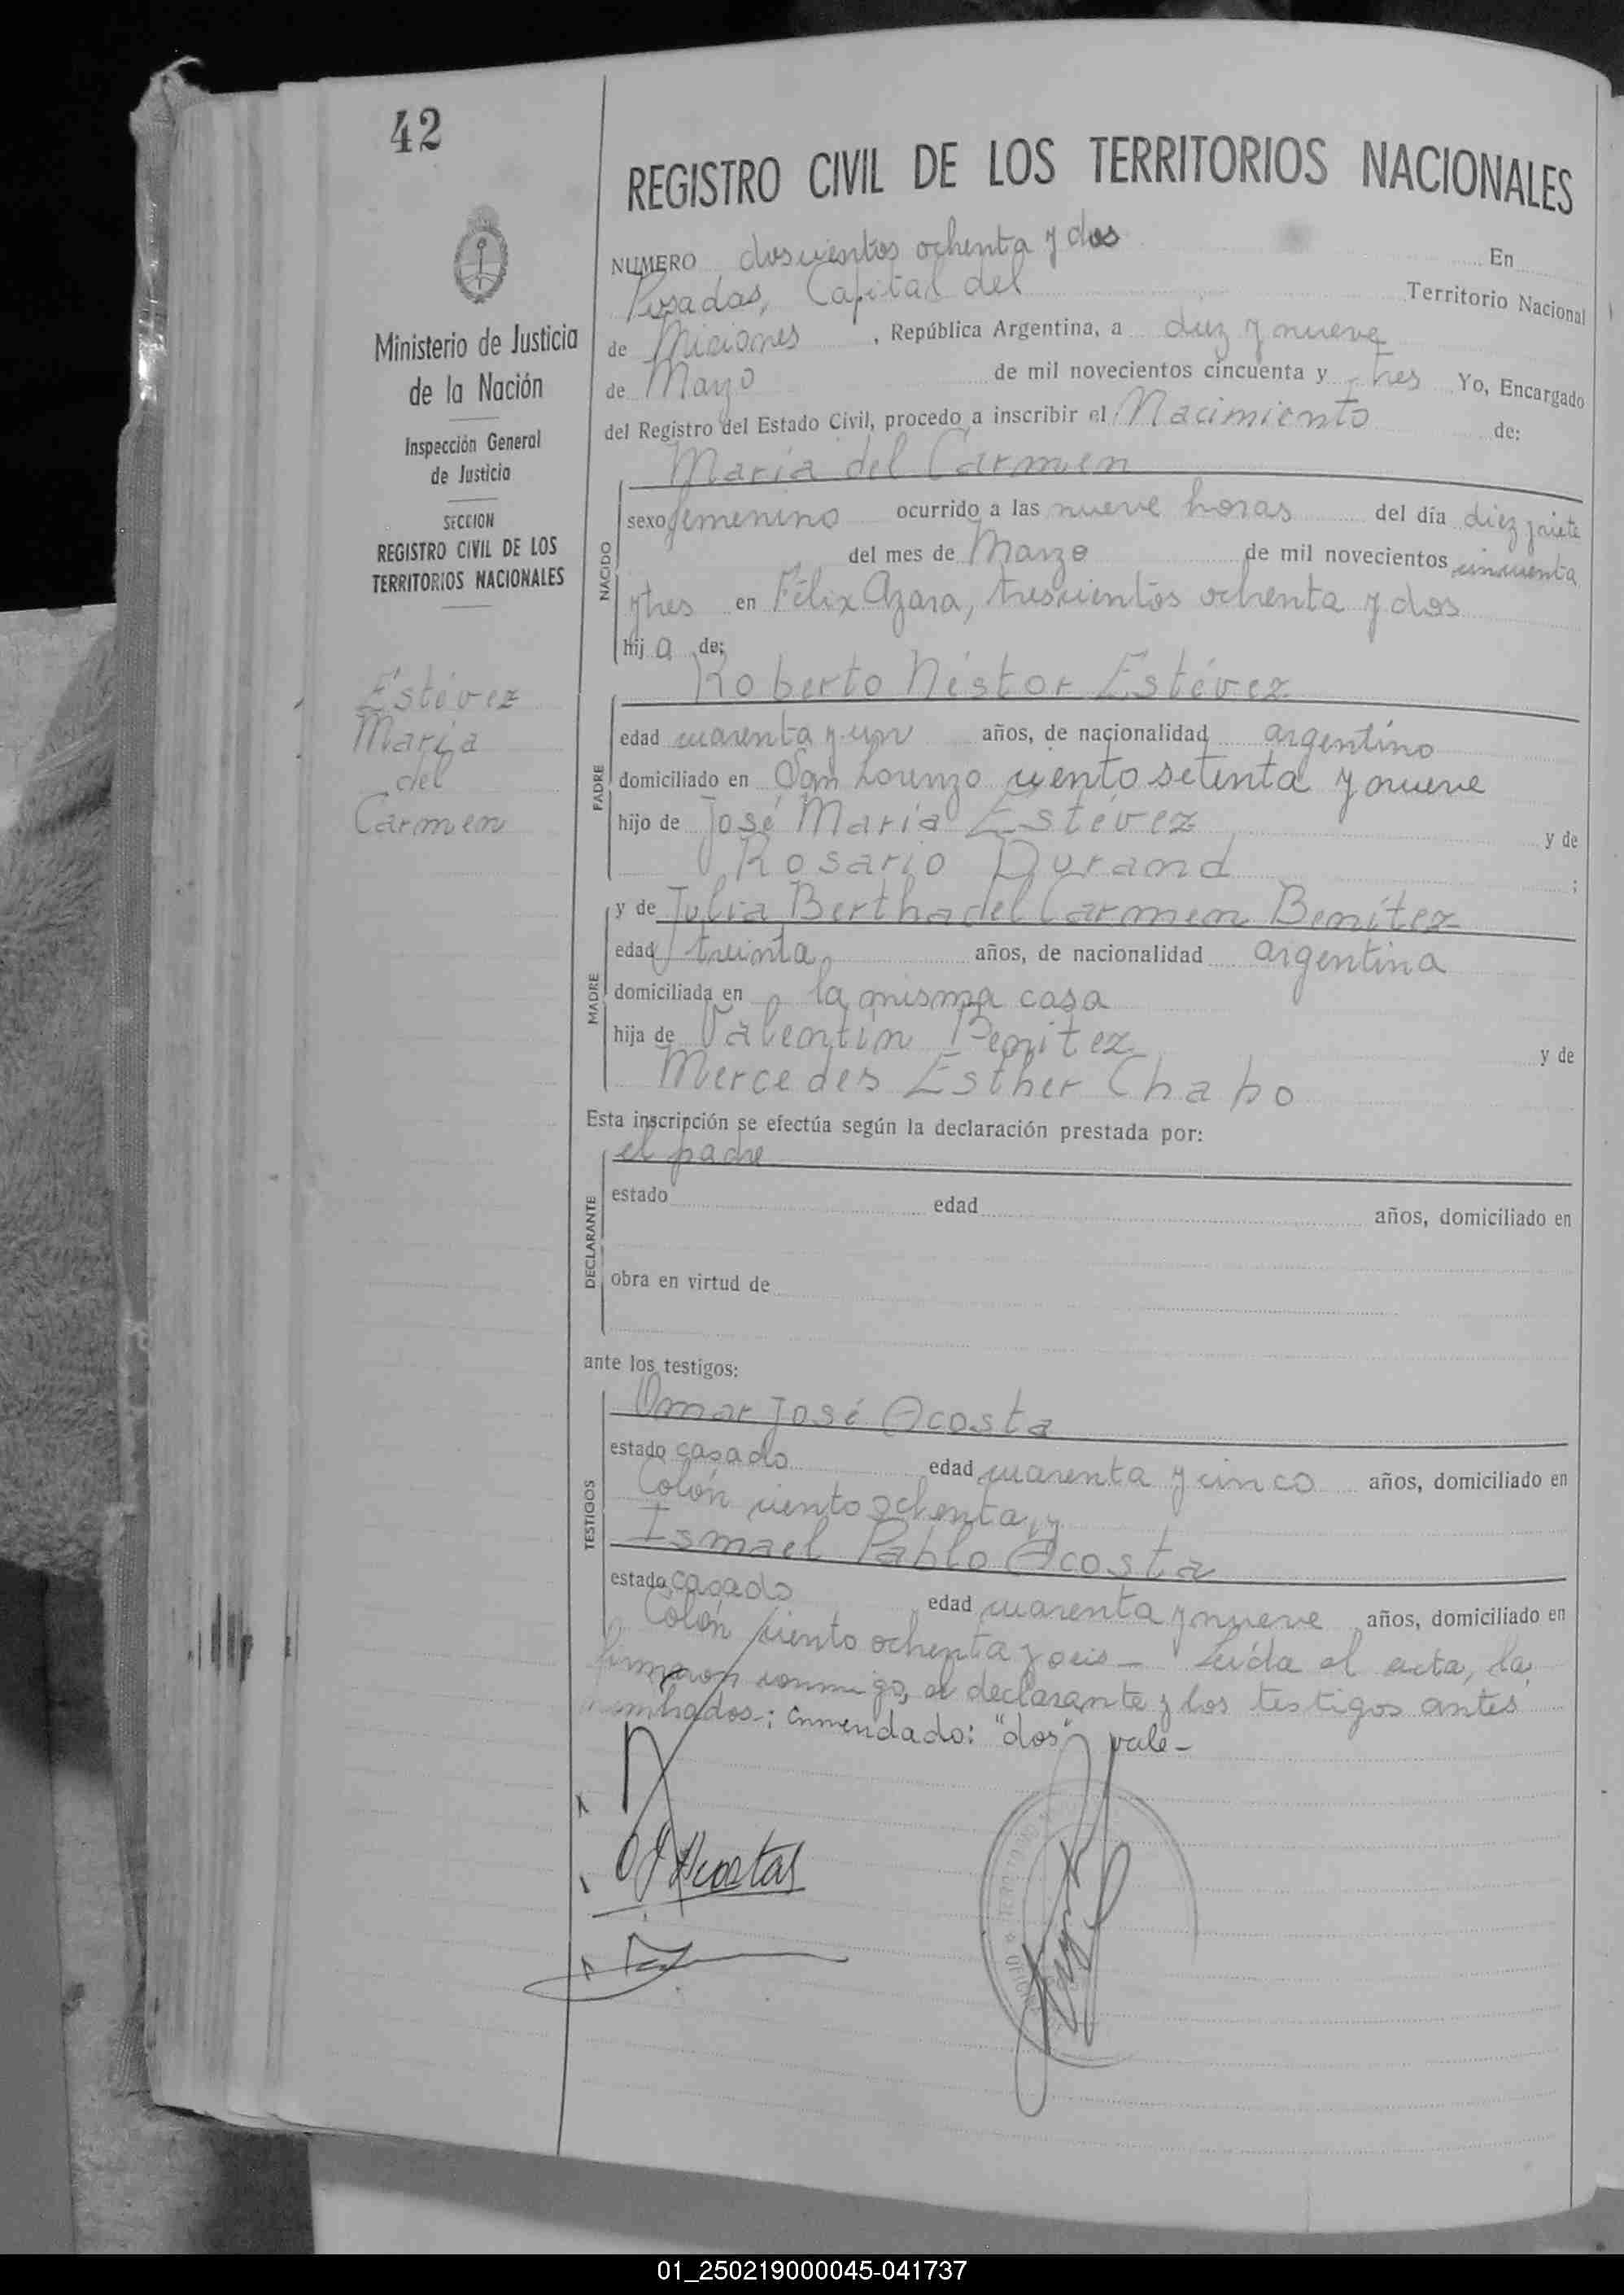 42
REGISTRO CIVIL DE LOS TERRITORIOS NACIONALES
NUMERO doscientos ochenta y dos En
Posadas, Capital del Territorio Nacional
de Misiones, República Argentina, a diez y nueve
de Mayo de mil novecientos cincuenta y tres Yo, Encargado
del Registro del Estado Civil, procedo a inscribir el Nacimiento de:
Ministerio de Justicia
de la Nación
Inspección General
de Justicia
SECCION
REGISTRO CIVIL DE LOS
TERRITORIOS NACIONALES
Estévez
María
del
Carmen
NACIDO
María del Carmen
sexo femenino ocurrido a las nueve horas del día diez y siete
del mes de Marzo de mil novecientos cincuenta
y tres en Félix Azara, trescientos ochenta y dos
hija de:
PADRE
Roberto Néstor Estévez
edad cuarenta y un años, de nacionalidad argentino
domiciliado en San Lorenzo ciento setenta y nueve
hijo de José María Estévez y de
Rosario Durand ;
MADRE
y de Julia Bertha del Carmen Benítez
edad treinta, años, de nacionalidad argentina
domiciliada en la misma casa
hija de Valentín Benitez y de
Mercedes Esther Chapo
Esta inscripción se efectúa según la declaración prestada por:
DECLARANTE
el padre
estado edad años, domiciliado en
obra en virtud de
ante los testigos:
TESTIGOS
Omar José Acosta
estado casado edad cuarenta y cinco años, domiciliado en
Colón ciento ochenta, y
Ismael Pablo Acosta
estado casado edad cuarenta y nueve años, domiciliado en
Colón ciento ochenta y seis - Leída el acta, la
firmaron conmigo, el declarante y los testigos antes
nombrados-: Enmendado: "dos" vale-
OJAcosta
01_250219000045-041737